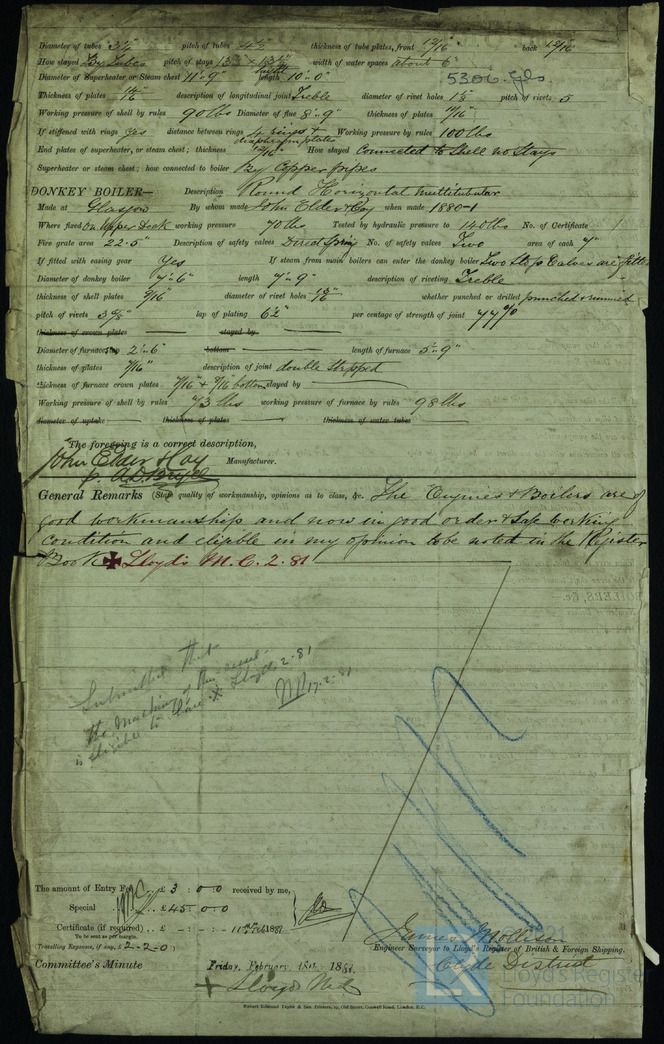 Diameter of tubes 3¼ pitch of tubes 4½ thickness of tube plates, front 13/16 back 13/16
How stayed By tubes pitch of stays width of water spaces about 6"
Diameter of Superheater or Steam chest 11'.9" length 10'.0" 5306.Gls.
Thickness of plates description of longitudinal joint Treble diameter of rivet holes 1⅛ pitch of rivets 5
Working pressure of shell by rules 90 lbs Diameter of flue 8'.9" thickness of plates
If stiffened with rings Yes distance between rings rings + diaphragm plates Working pressure by rules 100 lbs
End plates of superheater, or steam chest; thickness How stayed Connected to Shell no Stays
Superheater or steam chest; how connected to boiler By Copper pipes
DONKEY BOILER— Description Round Horizontal multitubular
Made at Glasgow By whom made John Elder & Coy when made 1880-1
Where fixed On Upper Deck working pressure 70 lbs Tested by hydraulic pressure to 140 lbs No. of Certificate
Fire grate area 22.5" Description of safety valves Direct Spring No. of safety valves Two area of each 7"
If fitted with easing gear Yes If steam from main boilers can enter the donkey boiler Two Stop Valves are fitted
Diameter of donkey boiler 7'.6" length 7'.9" description of riveting Treble
thickness of shell plates 9/16" diameter of rivet holes 13/16 whether punched or drilled punched & rimmed
pitch of rivets 3⅝" lap of plating 6½" per centage of strength of joint 77%
thickness of crown plates stayed by
Diameter of furnace top 2'.6" bottom length of furnace 5'.9"
thickness of plates 7/16" description of joint double strapped
thickness of furnace crown plates 7/16" + 9/16" bottom stayed by
Working pressure of shell by rules 73 lbs working pressure of furnace by rules 98 lbs
diameter of uptake thickness of plates thickness of water tubes
The foregoing is a correct description,
John Elder & Coy Manufacturer.
General Remarks (State quality of workmanship, opinions as to class, &c. The Engines & Boilers are of
good workmanship and now in good order & Safe working
Condition and eligible in my opinion to be noted in the Register
Book ✠ Lloyd's M.C. 2.81
Submitted that
the machinery of this vessel
is eligible to have ✠ Lloyds 2.81
17.2.81
The amount of Entry Fee .. £ 3 : 0 : 0 received by me,
Special .. £ 45 : 0 : 0
Certificate (if required) .. £ - : - : - 11th Feb 1881
To be sent as per margin.
(Travelling Expenses, if any, £ 2-2-0)
James Mollison
Engineer Surveyor to Lloyd's Register of British & Foreign Shipping.
Clyde District
Committee's Minute Friday, February 18th, 1881.
+ Lloyds M.C.
Robert Edmund Taylor & Son, Printers, 19, Old Street, Goswell Road, London, E.C.
LR
Lloyd's Register
Foundation